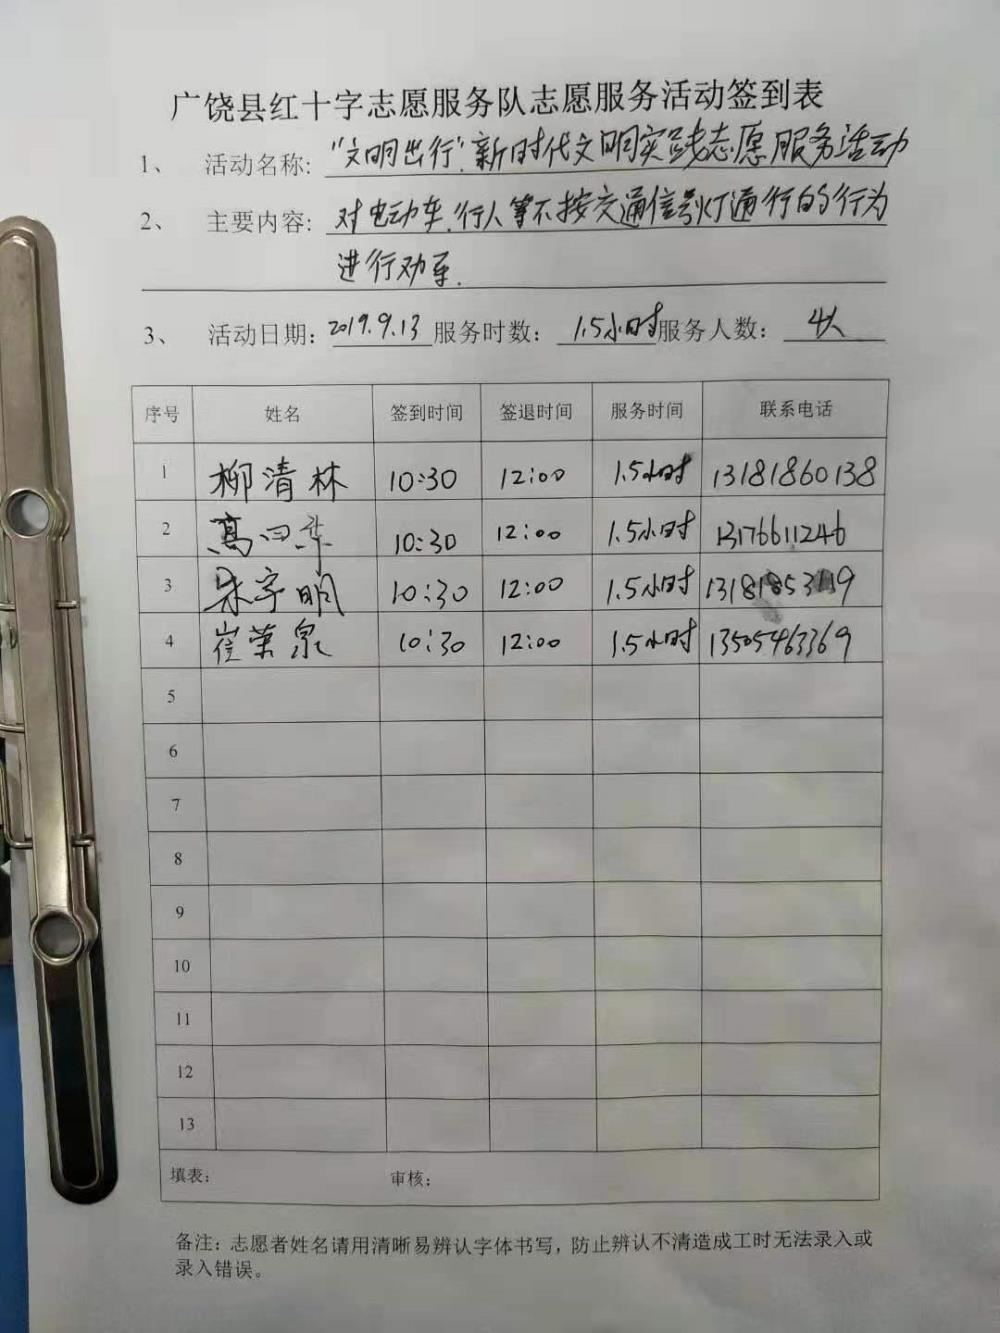 广饶县红十字志愿服务队志愿服务活动签到表
1、 活动名称: "文明出行"新时代文明实践志愿服务活动
2、 主要内容: 对电动车.行人等不按交通信号灯通行的行为
进行劝导.
3、 活动日期: 2019.9.13 服务时数: 1.5小时 服务人数: 4人
序号 姓名 签到时间 签退时间 服务时间 联系电话
1 柳清林 10:30 12:00 1.5小时 13181860138
2 高四 10:30 12:00 1.5小时 13176611246
3 朱宇明 10:30 12:00 1.5小时
4 崔荣泉 10:30 12:00 1.5小时 13505463369
5
6
7
8
9
10
11
12
13
填表: 审核:
备注: 志愿者姓名请用清晰易辨认字体书写, 防止辨认不清造成工时无法录入或
录入错误。